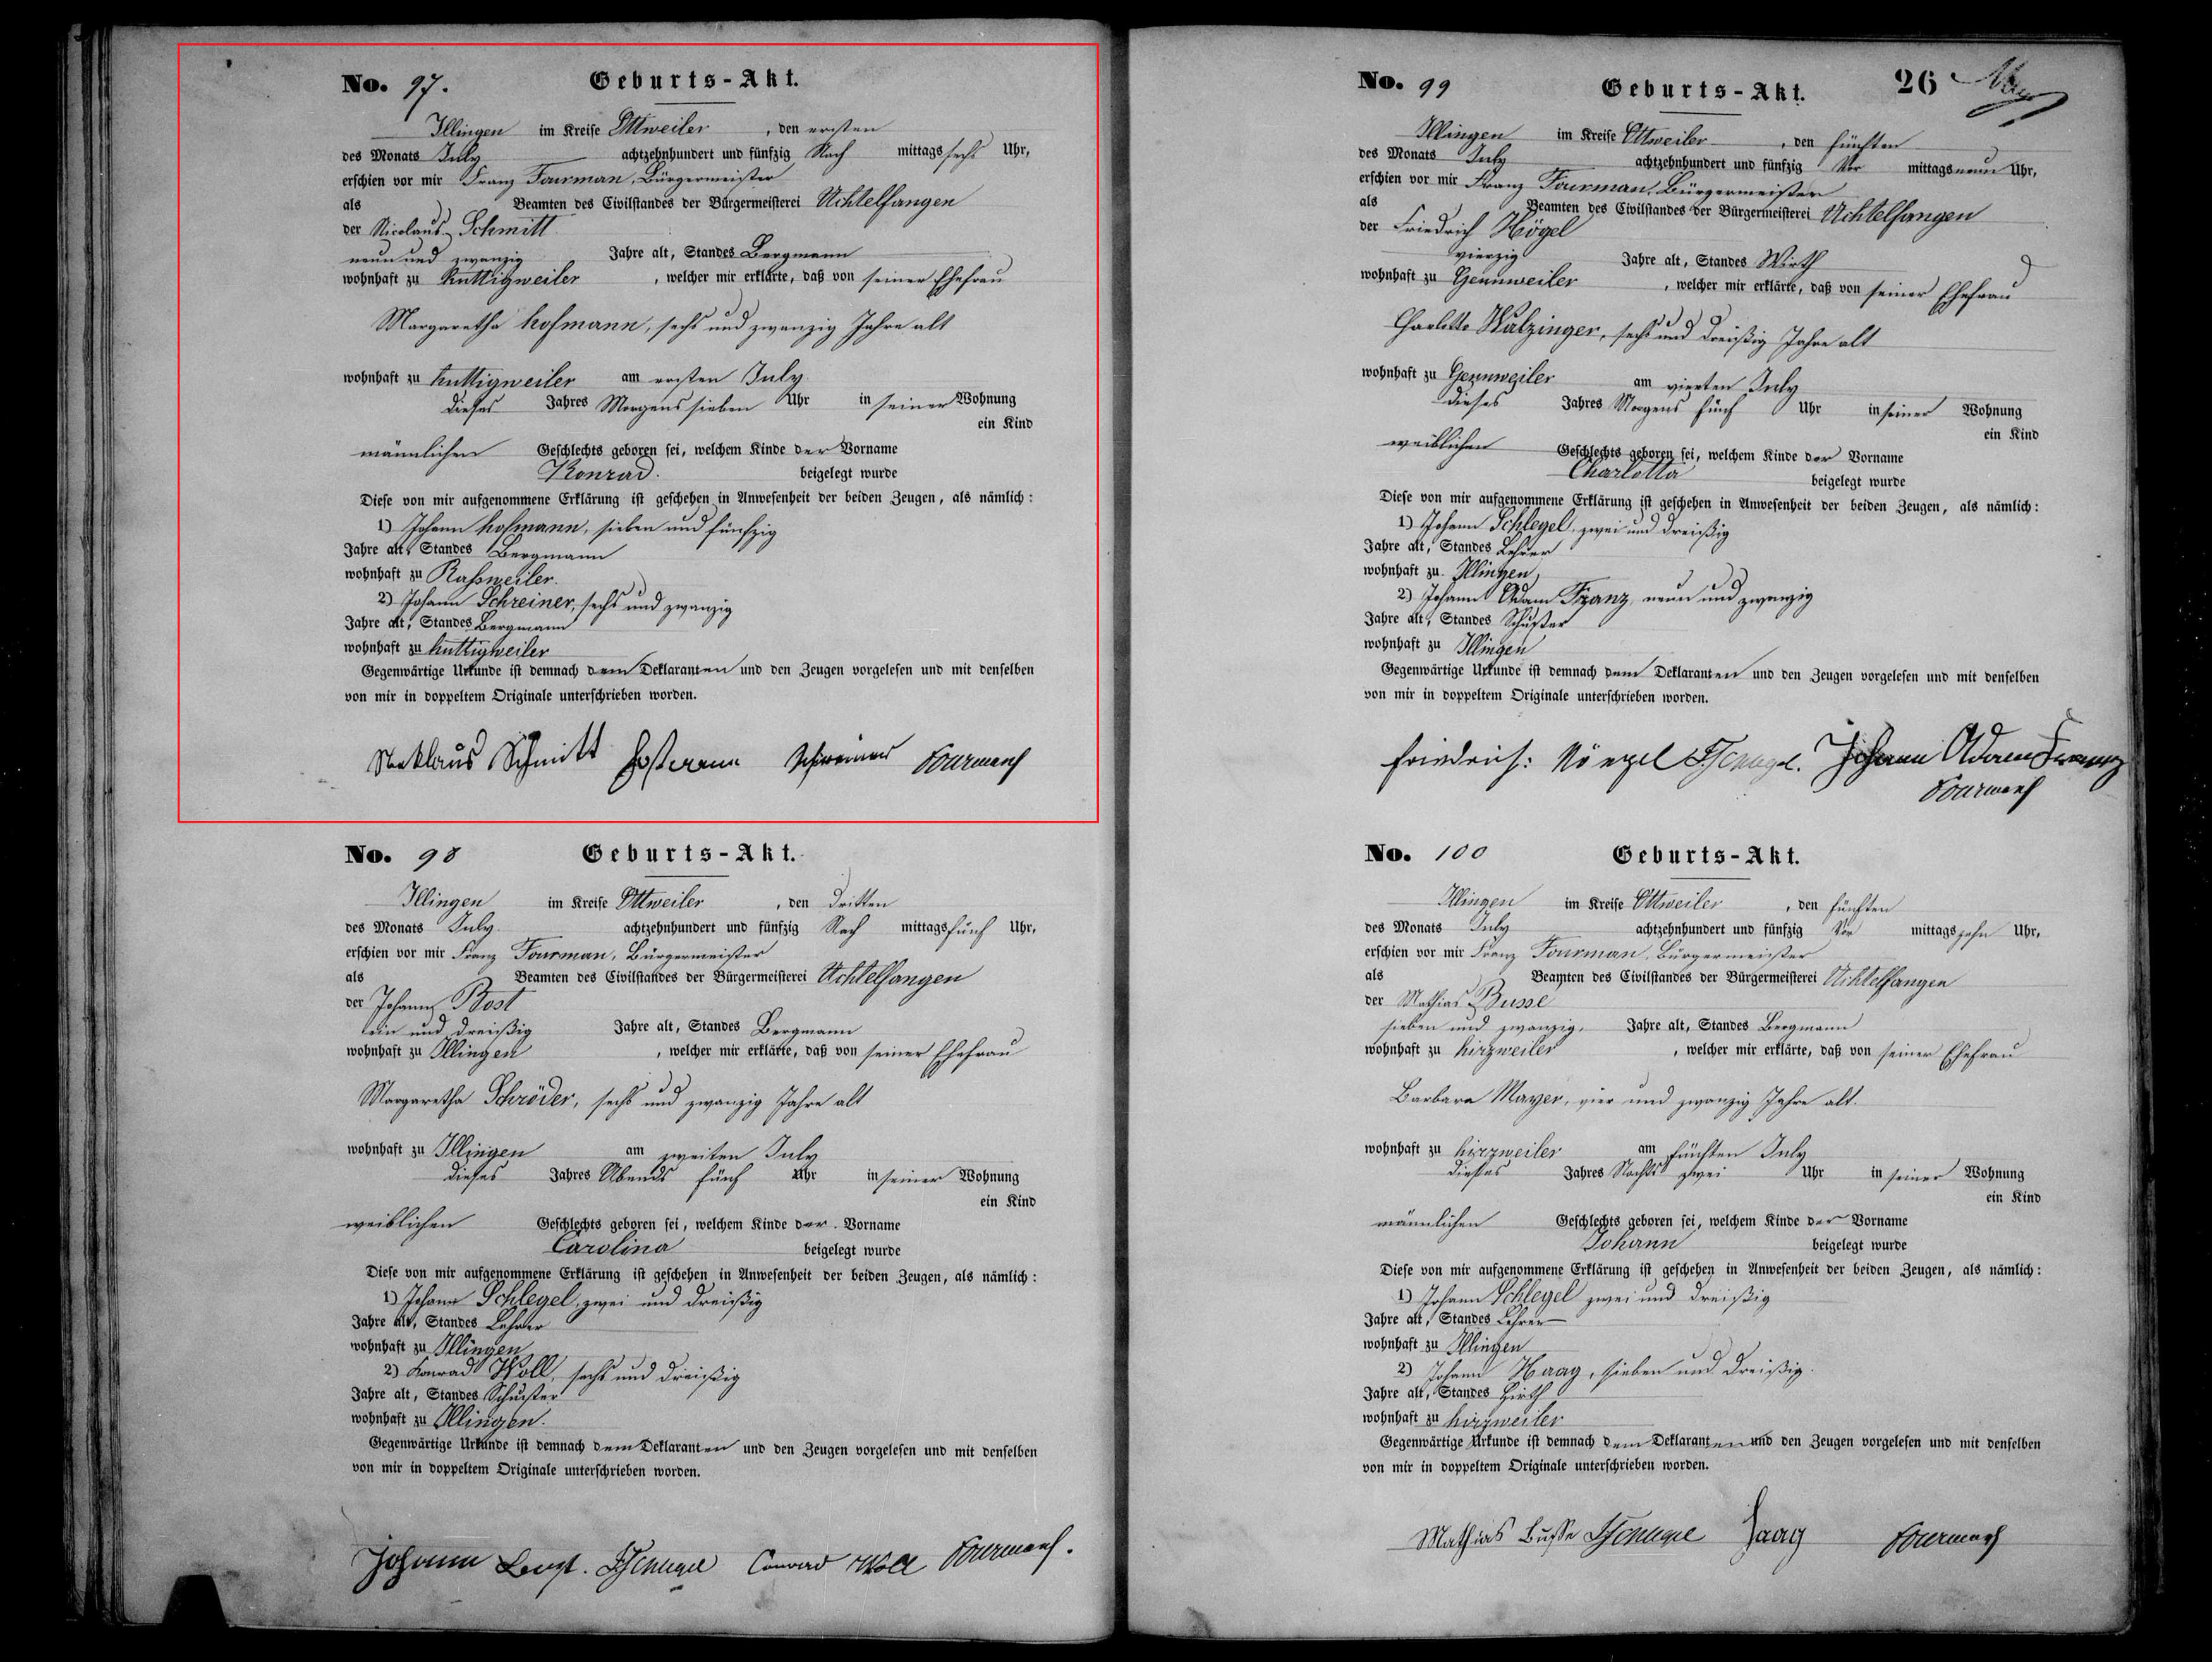 No. 97. Geburts-Akt.
Illingen im Kreise Ottweiler, den ersten
des Monats July achtzehnhundert und fünfzig Nach mittags sechs Uhr,
erschien vor mir Franz Fourman, Bürgermeister
als Beamten des Civilstandes der Bürgermeisterei Uchtelfangen
der Nicolaus Schmitt
neun und zwanzig Jahre alt, Standes Bergmann
wohnhaft zu Huttigweiler, welcher mir erklärte, daß von seiner Ehefrau
Margaretha Hofmann, sechs und zwanzig Jahre alt
wohnhaft zu Huttigweiler am ersten July
dieses Jahres Morgens sieben Uhr in seiner Wohnung
ein Kind
männlichen Geschlechts geboren sei, welchem Kinde der Vorname
Konrad. beigelegt wurde
Diese von mir aufgenommene Erklärung ist geschehen in Anwesenheit der beiden Zeugen, als nämlich:
1) Johann Hofmann, sieben und fünfzig
Jahre alt, Standes Bergmann
wohnhaft zu Raßweiler.
2) Johann Schreiner, sechs und zwanzig
Jahre alt, Standes Bergmann
wohnhaft zu Huttigweiler
Gegenwärtige Urkunde ist demnach dem Deklaranten und den Zeugen vorgelesen und mit denselben
von mir in doppeltem Originale unterschrieben worden.
Schmitt Schreiner Fourman
No. 98 Geburts-Akt.
Illingen im Kreise Ottweiler, den dritten
des Monats July achtzehnhundert und fünfzig Nach mittags fünf Uhr,
erschien vor mir Franz Fourman, Bürgermeister
als Beamten des Civilstandes der Bürgermeisterei Uchtelfangen
der Johann Bost
ein und dreißig Jahre alt, Standes Bergmann
wohnhaft zu Illingen, welcher mir erklärte, daß von seiner Ehefrau
Margaretha Schröder, sechs und zwanzig Jahre alt
wohnhaft zu Illingen am zweiten July
dieses Jahres Abends fünf Uhr in seiner Wohnung
ein Kind
weiblichen Geschlechts geboren sei, welchem Kinde der Vorname
Carolina beigelegt wurde
Diese von mir aufgenommene Erklärung ist geschehen in Anwesenheit der beiden Zeugen, als nämlich:
1) Johann Schlegel, zwei und dreißig
Jahre alt, Standes Lehrer
wohnhaft zu Illingen
2) Konrad Woll, sechs und dreißig
Jahre alt, Standes Schuster
wohnhaft zu Illingen.
Gegenwärtige Urkunde ist demnach dem Deklaranten und den Zeugen vorgelesen und mit denselben
von mir in doppeltem Originale unterschrieben worden.
Johann Bost. Schlegel Conrad Woll Fourman.
26
No. 99 Geburts-Akt.
Illingen im Kreise Ottweiler, den fünften
des Monats July achtzehnhundert und fünfzig Vor mittags neun Uhr,
erschien vor mir Franz Fourman, Bürgermeister
als Beamten des Civilstandes der Bürgermeisterei Uchtelfangen
der Friedrich Kögel
vierzig Jahre alt, Standes Wirth
wohnhaft zu Gennweiler, welcher mir erklärte, daß von seiner Ehefrau
Charlotte Walzinger, sechs und dreißig Jahre alt
wohnhaft zu Gennweiler am vierten July
dieses Jahres Morgens fünf Uhr in seiner Wohnung
ein Kind
weiblichen Geschlechts geboren sei, welchem Kinde der Vorname
Charlotta beigelegt wurde
Diese von mir aufgenommene Erklärung ist geschehen in Anwesenheit der beiden Zeugen, als nämlich:
1) Johann Schlegel, zwei und dreißig
Jahre alt, Standes Lehrer
wohnhaft zu Illingen,
2) Johann Adam Franz, neun und zwanzig
Jahre alt, Standes Schuster
wohnhaft zu Illingen
Gegenwärtige Urkunde ist demnach dem Deklaranten und den Zeugen vorgelesen und mit denselben
von mir in doppeltem Originale unterschrieben worden.
Schlegel. Johann Adam Franz
Fourman
No. 100 Geburts-Akt.
Illingen im Kreise Ottweiler, den fünften
des Monats July achtzehnhundert und fünfzig Vor mittags zehn Uhr,
erschien vor mir Franz Fourman, Bürgermeister
als Beamten des Civilstandes der Bürgermeisterei Uchtelfangen
der Mathias Busse
sieben und zwanzig, Jahre alt, Standes Bergmann
wohnhaft zu Hirzweiler, welcher mir erklärte, daß von seiner Ehefrau
Barbara Mayer, vier und zwanzig Jahre alt.
wohnhaft zu Hirzweiler am fünften July
dieses Jahres Nachts zwei Uhr in seiner Wohnung
ein Kind
männlichen Geschlechts geboren sei, welchem Kinde der Vorname
Johann beigelegt wurde
Diese von mir aufgenommene Erklärung ist geschehen in Anwesenheit der beiden Zeugen, als nämlich:
1) Johann Schlegel zwei und dreißig
Jahre alt, Standes Lehrer
wohnhaft zu Illingen
2) Johann Haag, sieben und dreißig.
Jahre alt, Standes Hirth
wohnhaft zu Hirzweiler
Gegenwärtige Urkunde ist demnach dem Deklaranten und den Zeugen vorgelesen und mit denselben
von mir in doppeltem Originale unterschrieben worden.
Mathias Busse Schlegel Haag Fourman